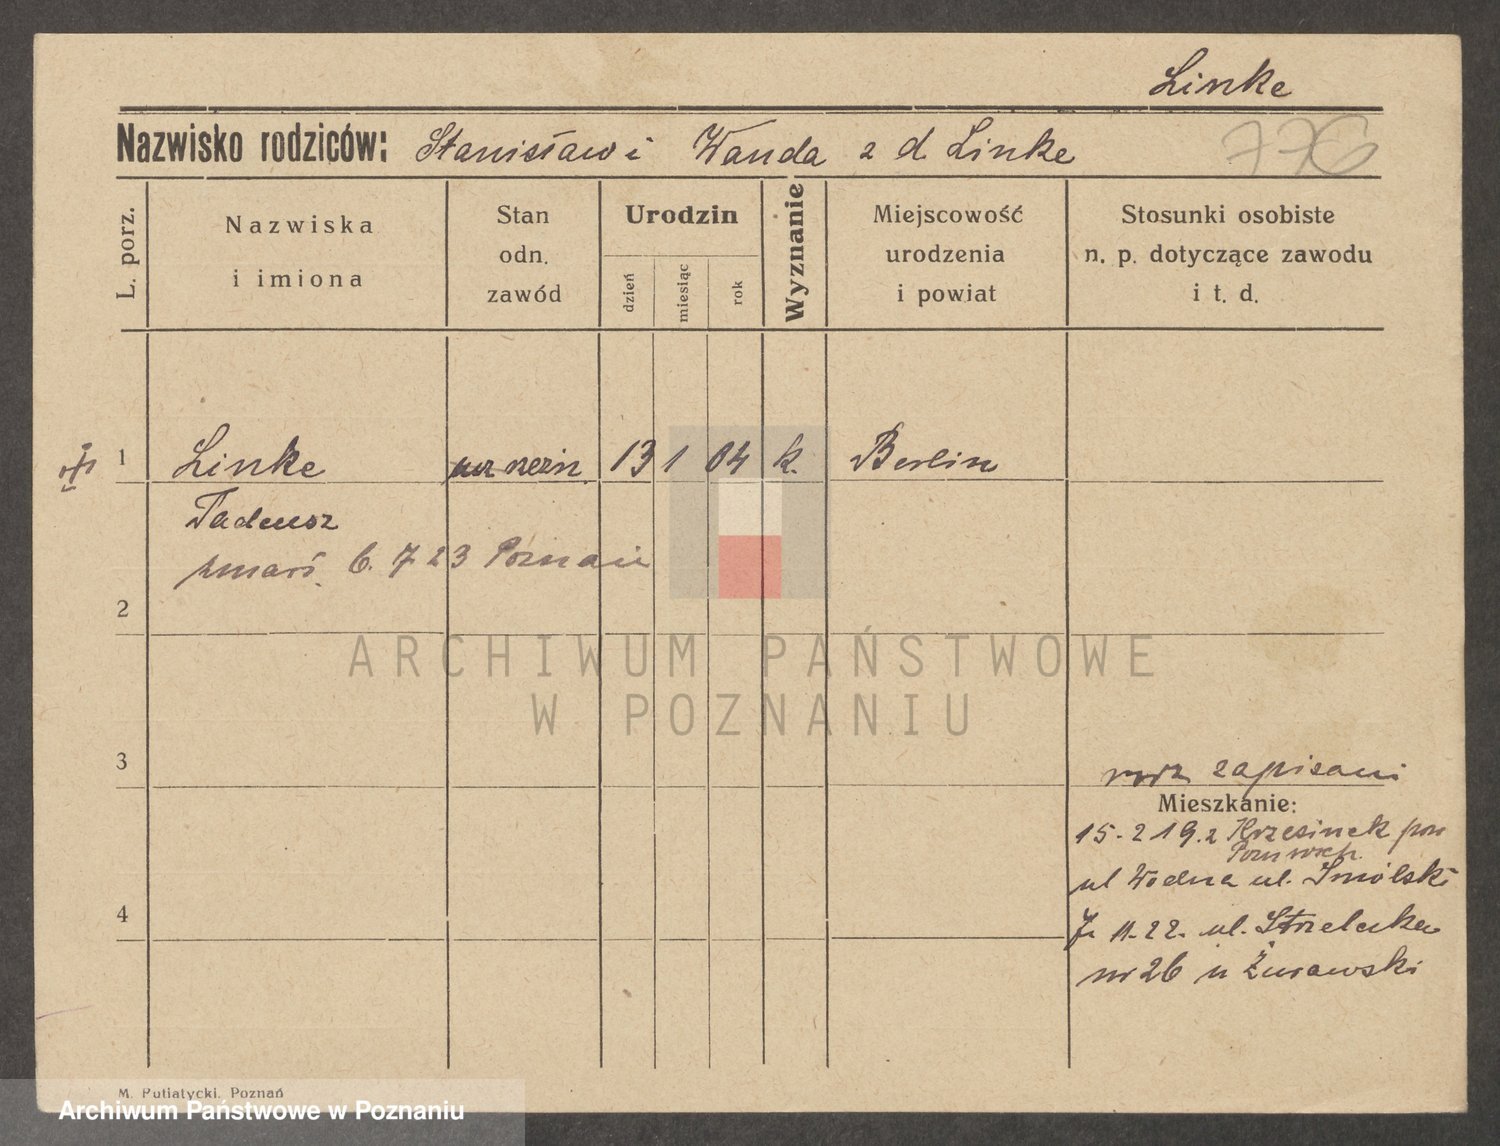 Linke
Nazwisko rodziców: Stanisław i Wanda z d. Linke
776
L. porz.
Nazwiska
i imiona
Stan
odn.
zawód
Urodzin
dzień
miesiąc
rok
Wyznanie
Miejscowość
urodzenia
i powiat
Stosunki osobiste
n. p. dotyczące zawodu
i t. d.
1 Linke 13 1 04 k. Berlin
Tadeusz
zmarł. 6. 7 23 Poznań
2
ARCHIWUM PAŃSTWOWE
W POZNANIU
3
zapisani
Mieszkanie:
15-2 19.2 Krzesinek pow
ul Wodna ul.
4
7. 11. 22. ul. Strzelecka
nr 26 u Żurawski
M. Putiatycki. Poznań
Archiwum Państwowe w Poznaniu